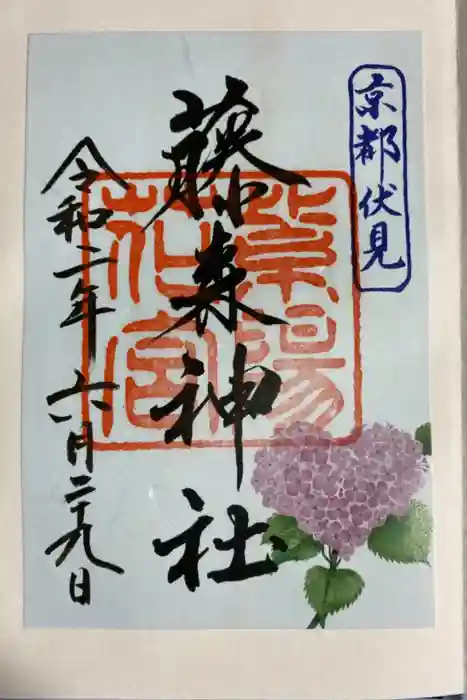 京都伏見
藤森神社
紫陽
花宮
令和二年 六月二十九日